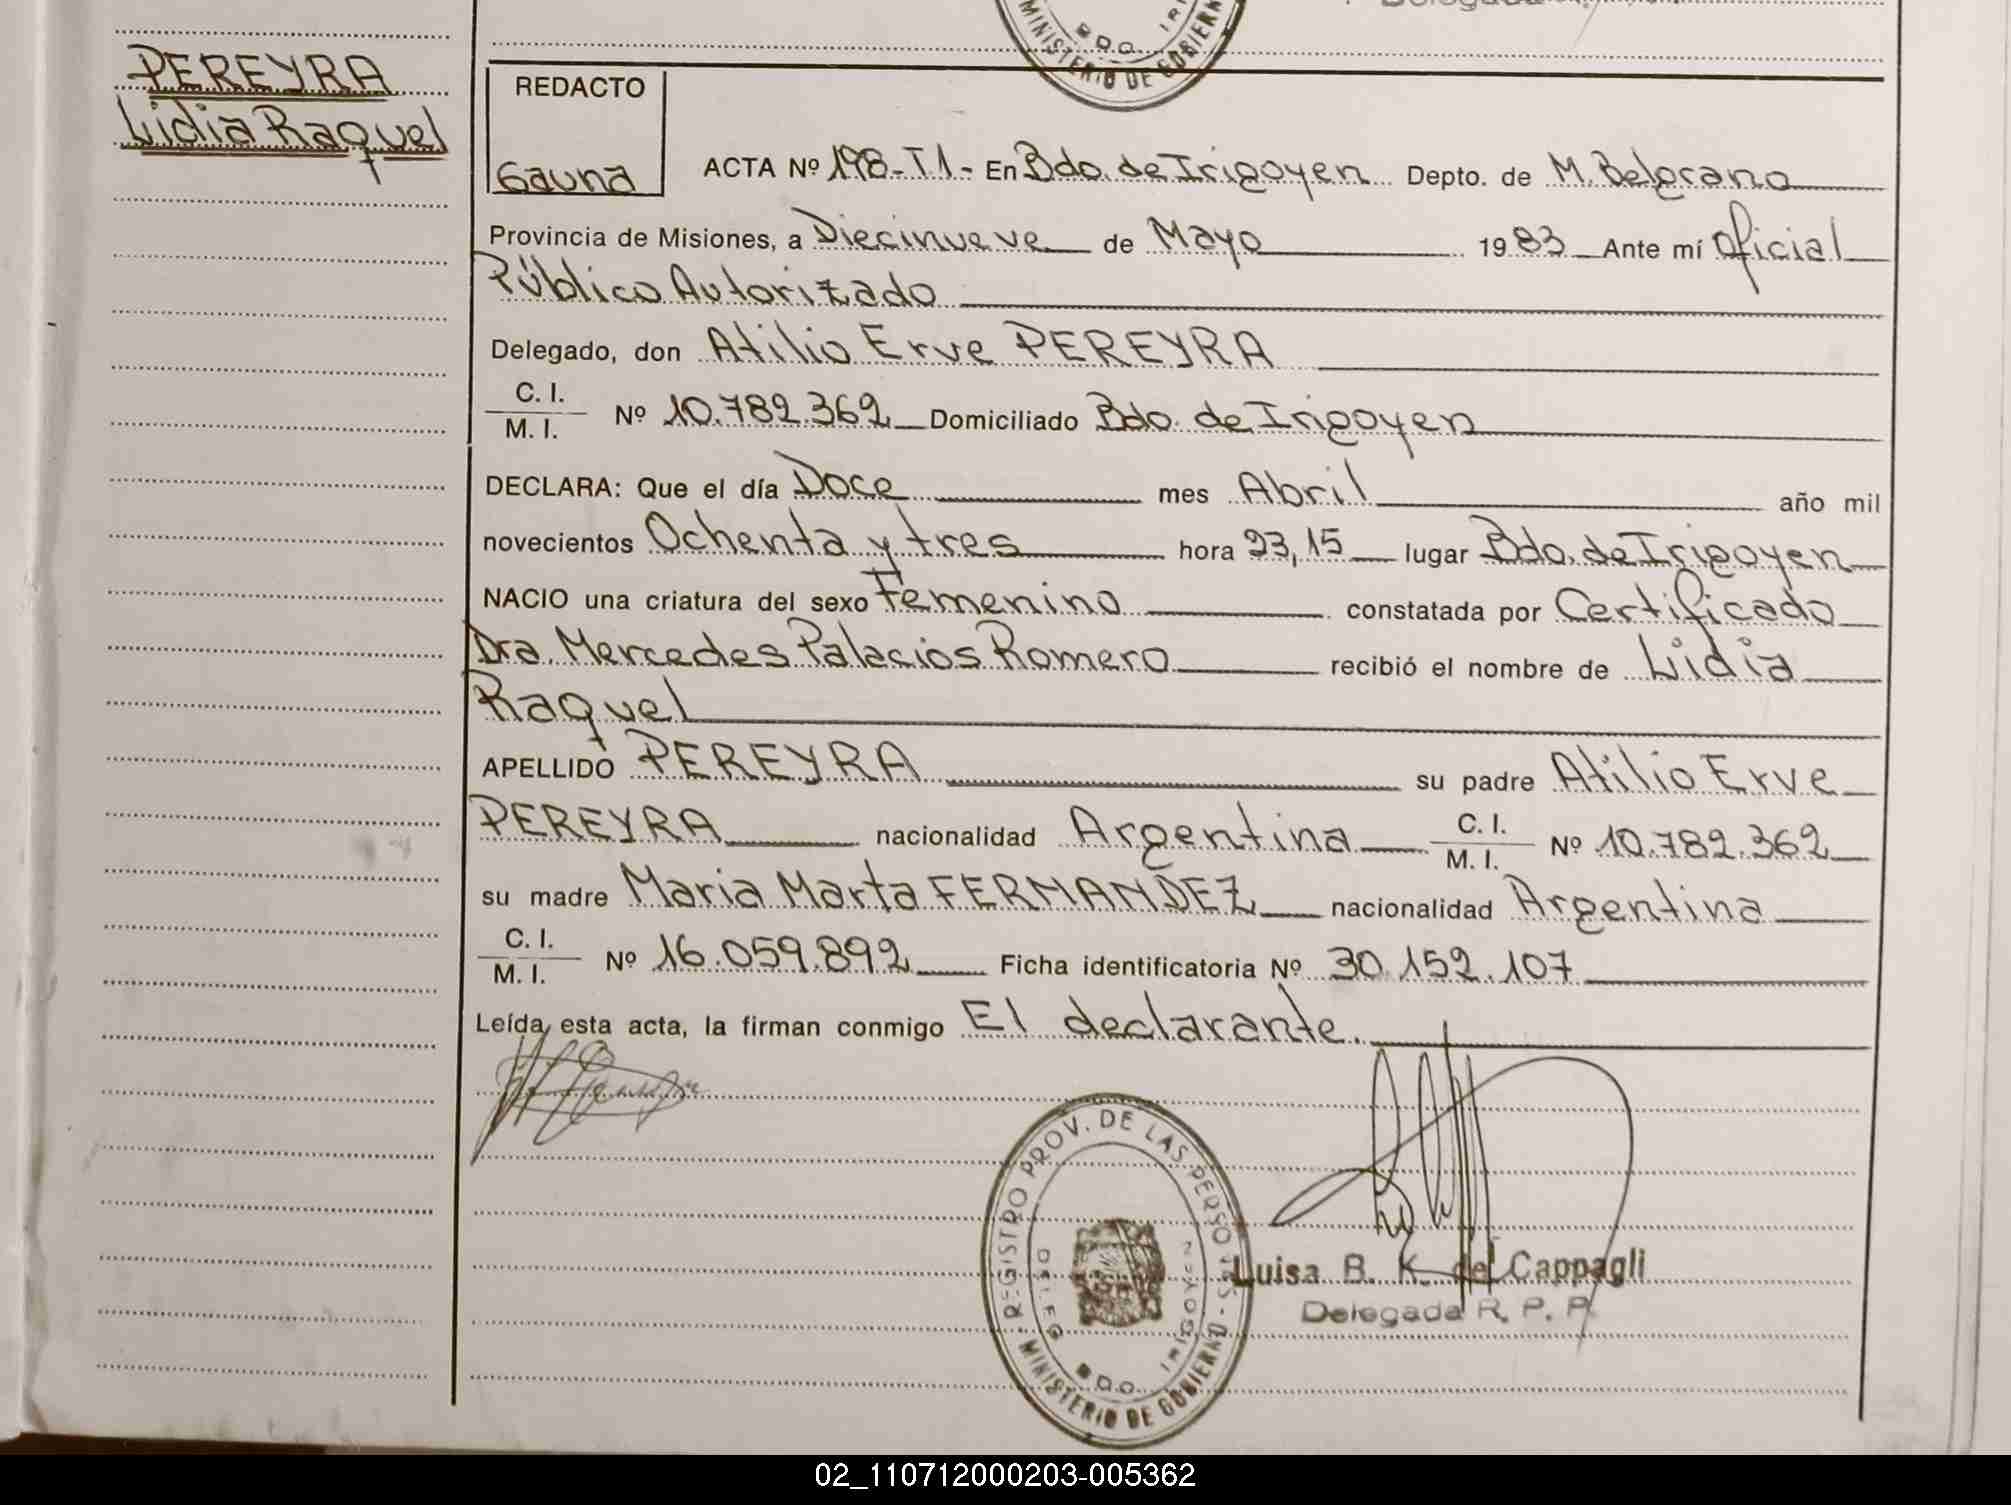 PEREYRA
Lidia Raquel
MINISTERIO DE GOBIERN
BDO. IRI
REDACTO
Gauna
ACTA Nº 198-T1- En Bdo. de Irigoyen Depto. de M. Belgrano
Provincia de Misiones, a Diecinueve de Mayo 1983 Ante mí Oficial
Público Autorizado
Delegado, don Atilio Erve PEREYRA
C. I.
M. I. Nº 10.782.362 Domiciliado Bdo. de Irigoyen
DECLARA: Que el día Doce mes Abril año mil
novecientos Ochenta y tres hora 23,15 lugar Bdo. de Irigoyen
NACIO una criatura del sexo Femenino constatada por Certificado
Dra. Mercedes Palacios Romero recibió el nombre de Lidia
Raquel
APELLIDO PEREYRA su padre Atilio Erve
PEREYRA nacionalidad Argentina C. I.
M. I. Nº 10.782.362
su madre Maria Marta FERNANDEZ nacionalidad Argentina
C. I.
M. I. Nº 16.059.892 Ficha identificatoria Nº 30.152.107
Leída esta acta, la firman conmigo El declarante.
REGISTRO PROV. DE LAS PERSONAS - MINISTERIO DE GOBIERNO
DELEG BDO. IRIGOYEN
Luisa B. K. de Cappagli
Delegada R. P. P.
02_110712000203-005362